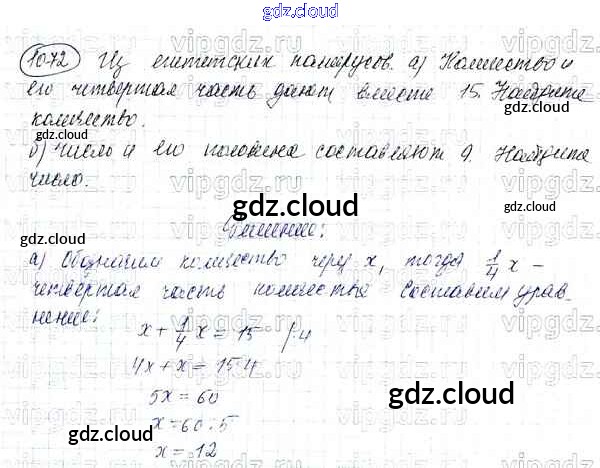 gdz.cloud
1072 Из египетских папирусов. а) Количество и
его четвертая часть дают вместе 15. Найдите
количество.
б) Число и его половина составляют 9. Найдите
число.
gdz.cloud
Решение:
а) Обозначим количество через x, тогда 1/4 x –
четвёртая часть количества Составим урав-
нение:
x + 1/4 x = 15 /·4
4x + x = 15·4
5x = 60
gdz.cloud
x = 60:5
gdz.cloud
x = 12
gdz.cloud